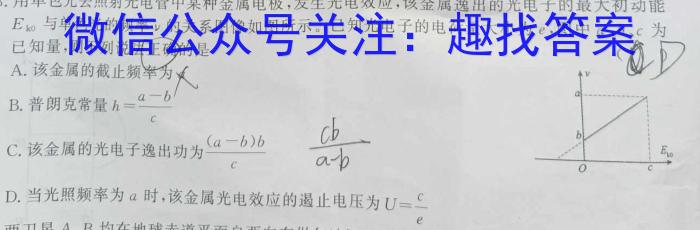 用单色光去照射光电管中某种金属电极,发生光电效应,该金属逸出的光电子的最大初动能
E_k0 与单 的关系图像如图所示。已知光电子的电 为
微信公众号关注：趣找答案
已知量, 正确的是
A. 该金属的截止频率为
B. 普朗克常量 h=(a-b)/c
C. 该金属的光电子逸出功为 (a-b)b/c
cb/(a-b)
D. 当光照频率为 a 时,该金属光电效应的遏止电压为 U=c/e
A、B 均在地球赤道平面
ν
a
b
O
c
E_k0
D